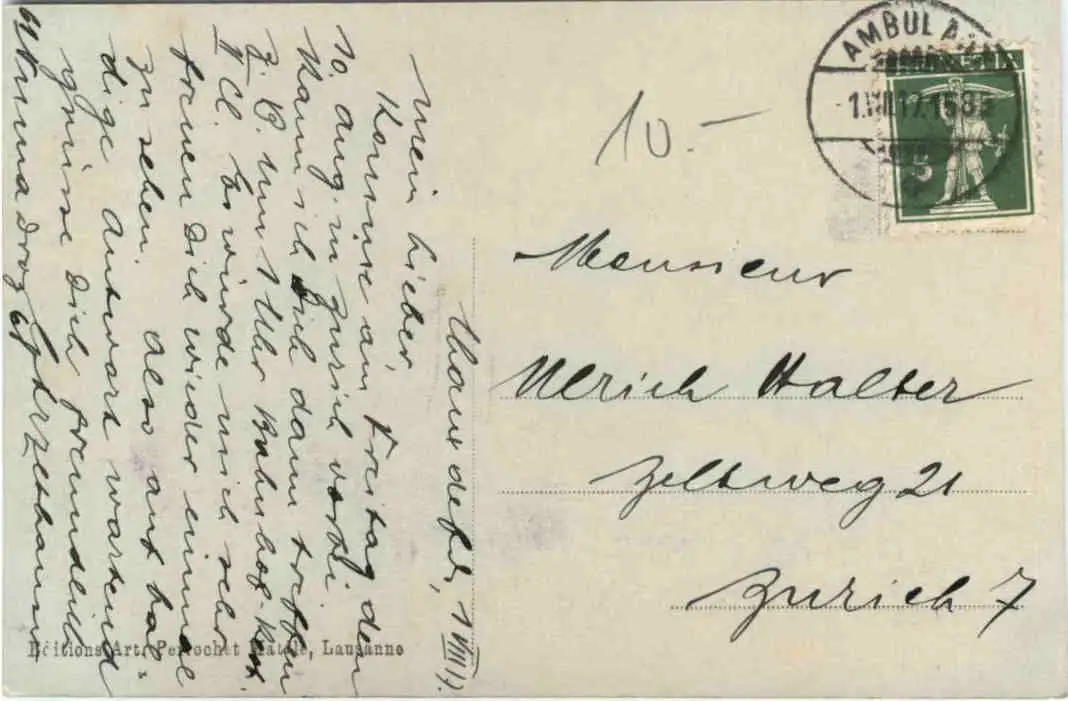 AMBULAN
1.VIII.17.-168
5
10.-
Monsieur
Ulrich Halter
Zeltweg 21
Zürich 7
1 VIII 17.
Mein Lieber,
Komme am Freitag den
10. Aug. in Zürich vorbei
Kann ich Dich dann treffen
z. B. um 1 Uhr Bahnhof-
II Cl. Es würde mich sehr
freuen Dich wieder einmal
zu sehen. Also auf bal-
dige Antwort wartend
grüsse Dich freundlich
Editions Art. Perrochet Matile, Lausanne